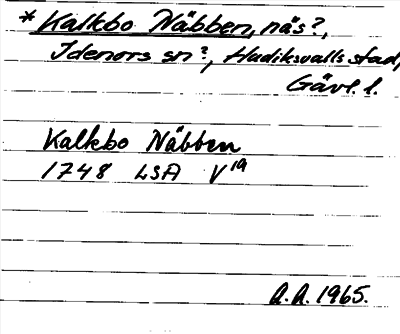 * Kalkbo Näbben, näs?,
Idenors sn?, Hudiksvalls stad,
Gävl. l.
Kalkbo Näbben
1748 LSA V19
A.A. 1965.